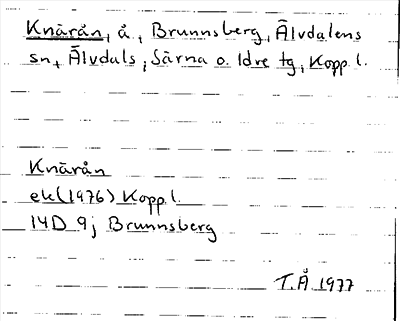 Knärån, å, Brunnsberg, Älvdalens
sn, Älvdals, Särna o. Idre tg, Kopp l.
Knärån
ek (1976) Kopp l.
14D 9j Brunnsberg
T.Å 1977